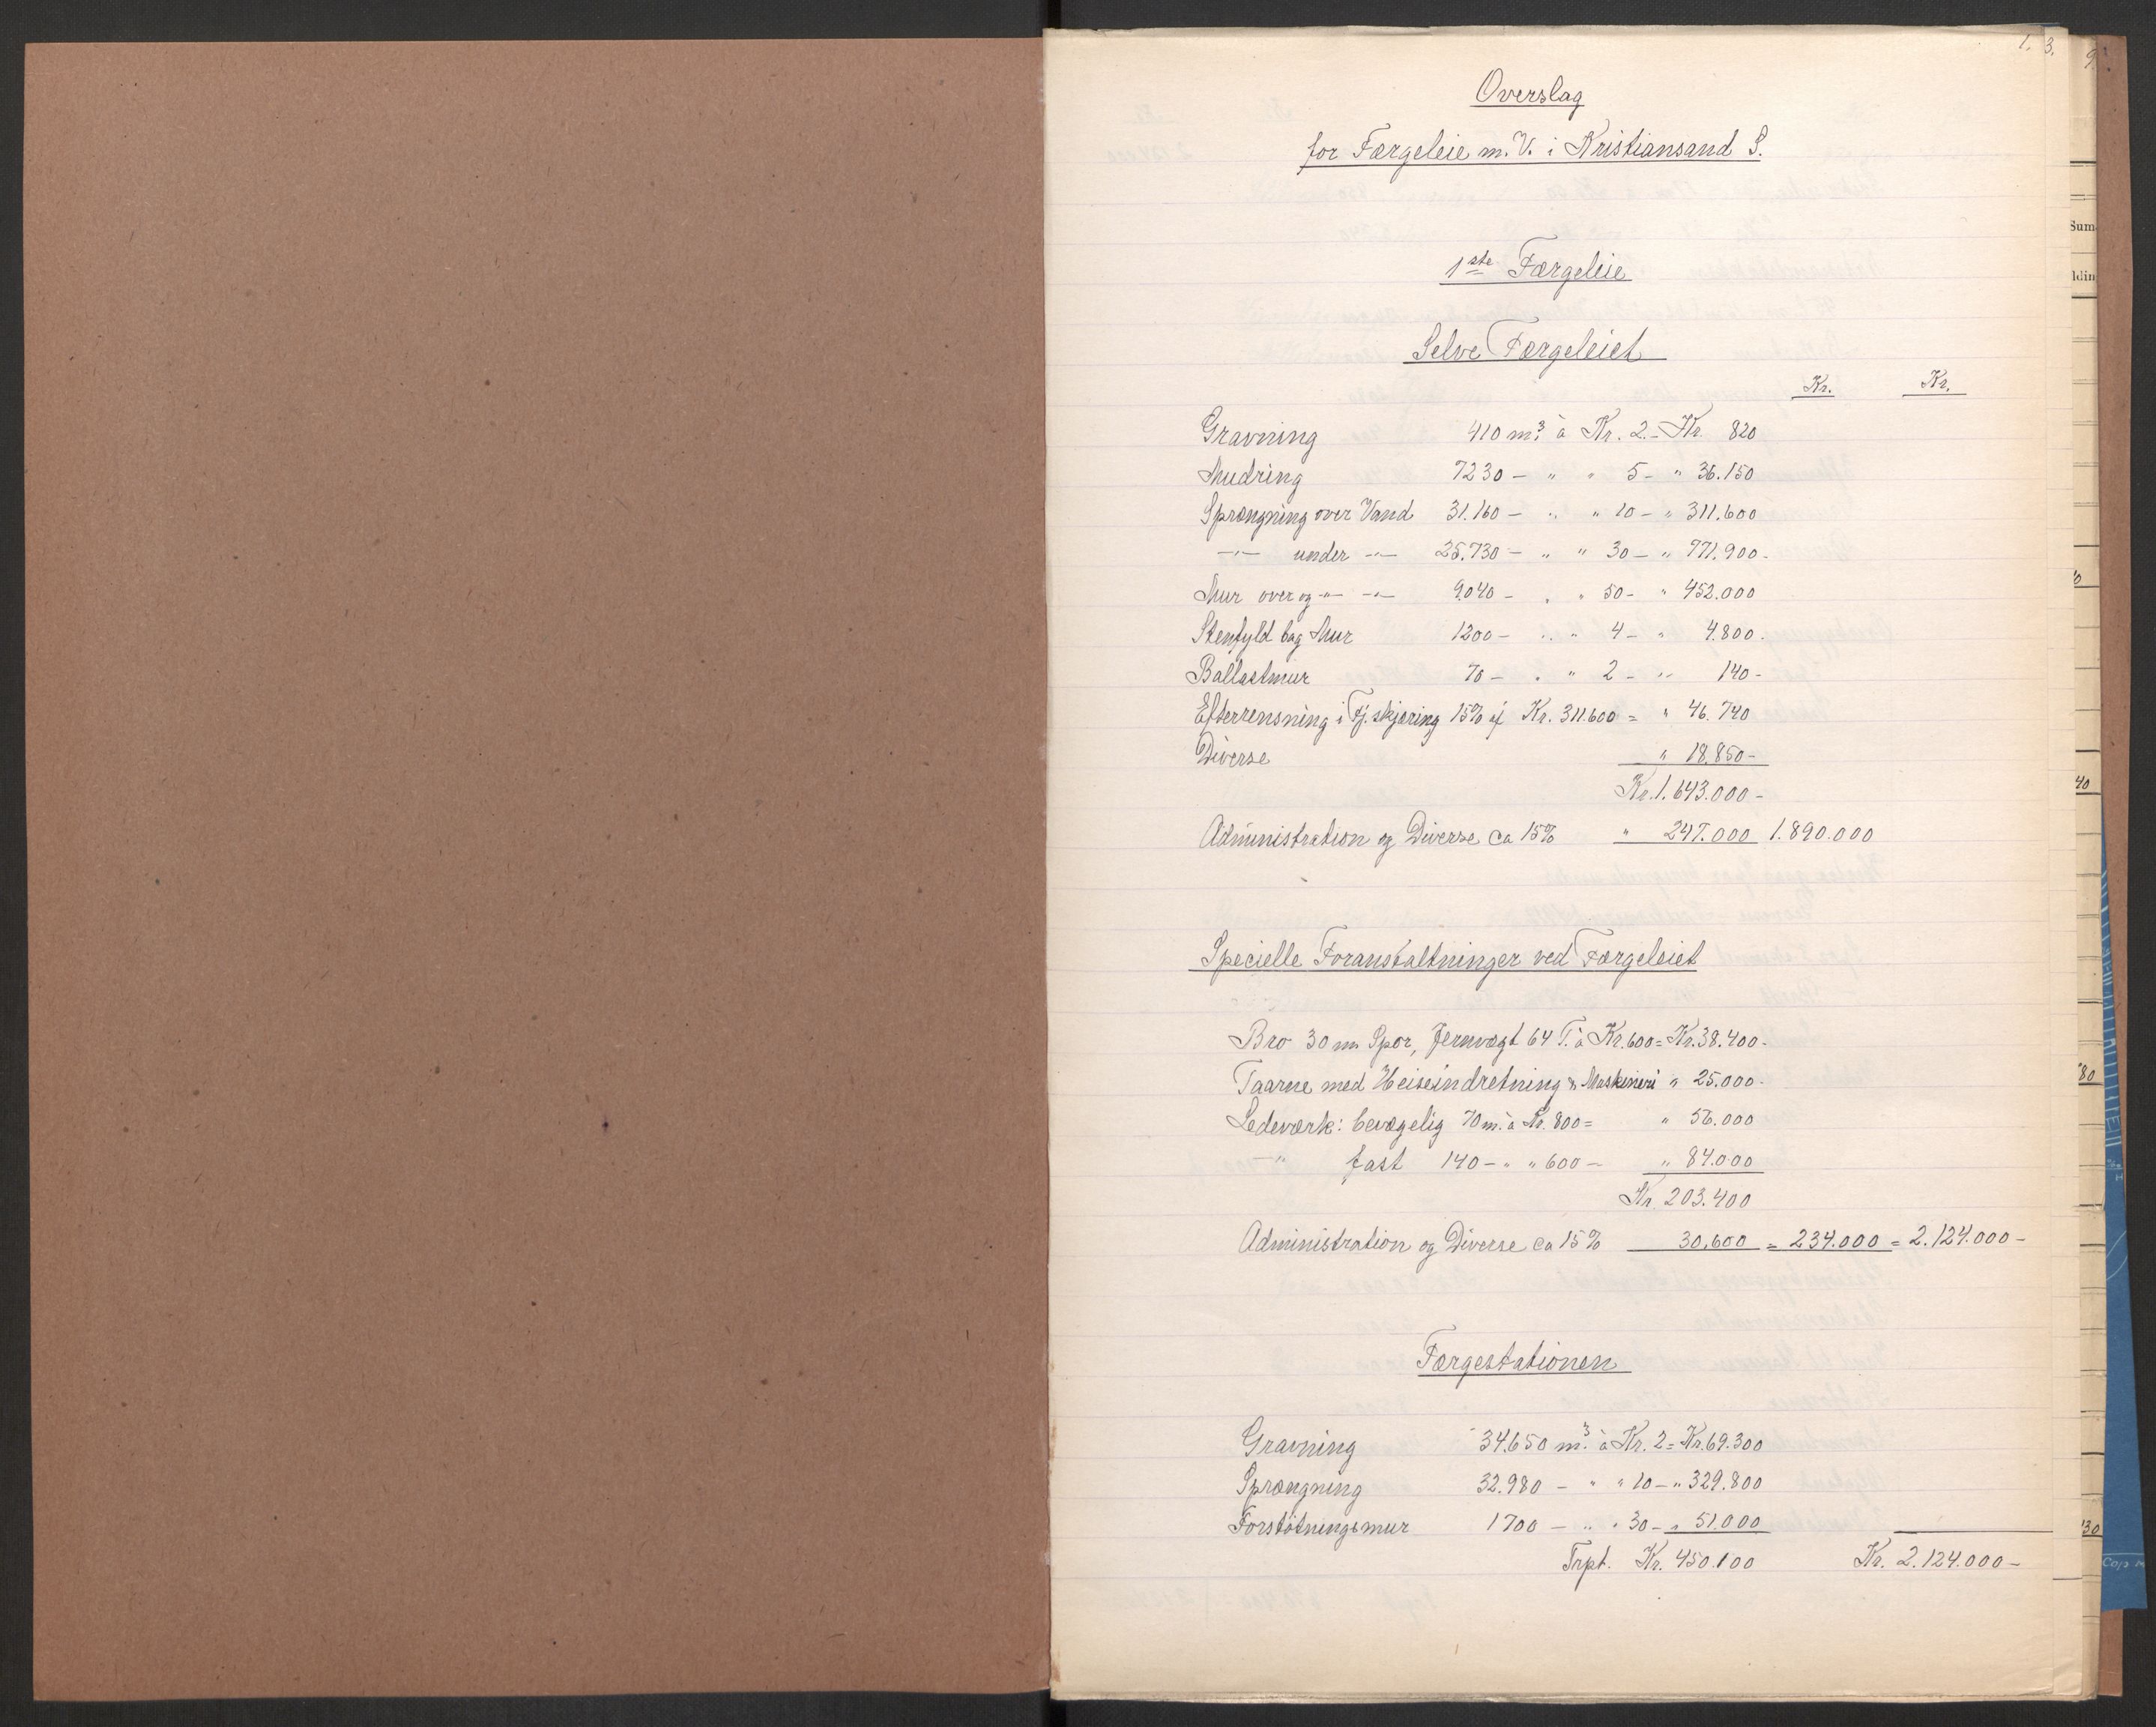 1. 3. 9.
Overslag
for Færgeleie m. V. i Kristiansand S.
1ste Færgeleie
Selve Færgeleiet
Kr. Kr.
Gravning 410 m³. à Kr. 2.- Kr. 820
Mudring 7230 - " " 5 - " 36.150
Sprængning over Vand 31.160 - " " 10 - " 311.600
-"- under -"- 25.730 - " " 30 - " 771.900-
Mur over og -"- -"- 9.040 - " " 50 - " 452.000
Stenfyld bag Mur 1200 - " " 4 - " 4.800.
Ballastmur 70 - " " 2 - " 140-
Efterrensning i Fj. skjæring 15% af Kr. 311.600 = " 46.740
Diverse " 18.850-
Kr. 1.643.000-
Administration og Diverse ca 15% " 247.000 1.890.000
Specielle Foranstaltninger ved Færgeleiet
Bro 30 m Spor, Jernvægt 64 T. à Kr. 600 = Kr. 38.400-
Taarne med Heiseindretning & Maskineri " 25.000-
Ledeværk: bevægelig 70 m. à Kr. 800 = " 56.000
-"- fast 140 - " " 600 - " 84.000
Kr 203.400
Administration og Diverse ca 15% 30.600 = 234.000 = 2.124.000-
Færgestationen
Gravning 34.650 m³. à Kr. 2 = Kr. 69.300
Sprængning 32.980 - " " 10 - " 329.800
Forstötningsmur 1700 - " " 30 - " 51.000
Trpt. Kr. 450.100 Kr. 2.124.000-
Sum
ldin
40
80
30